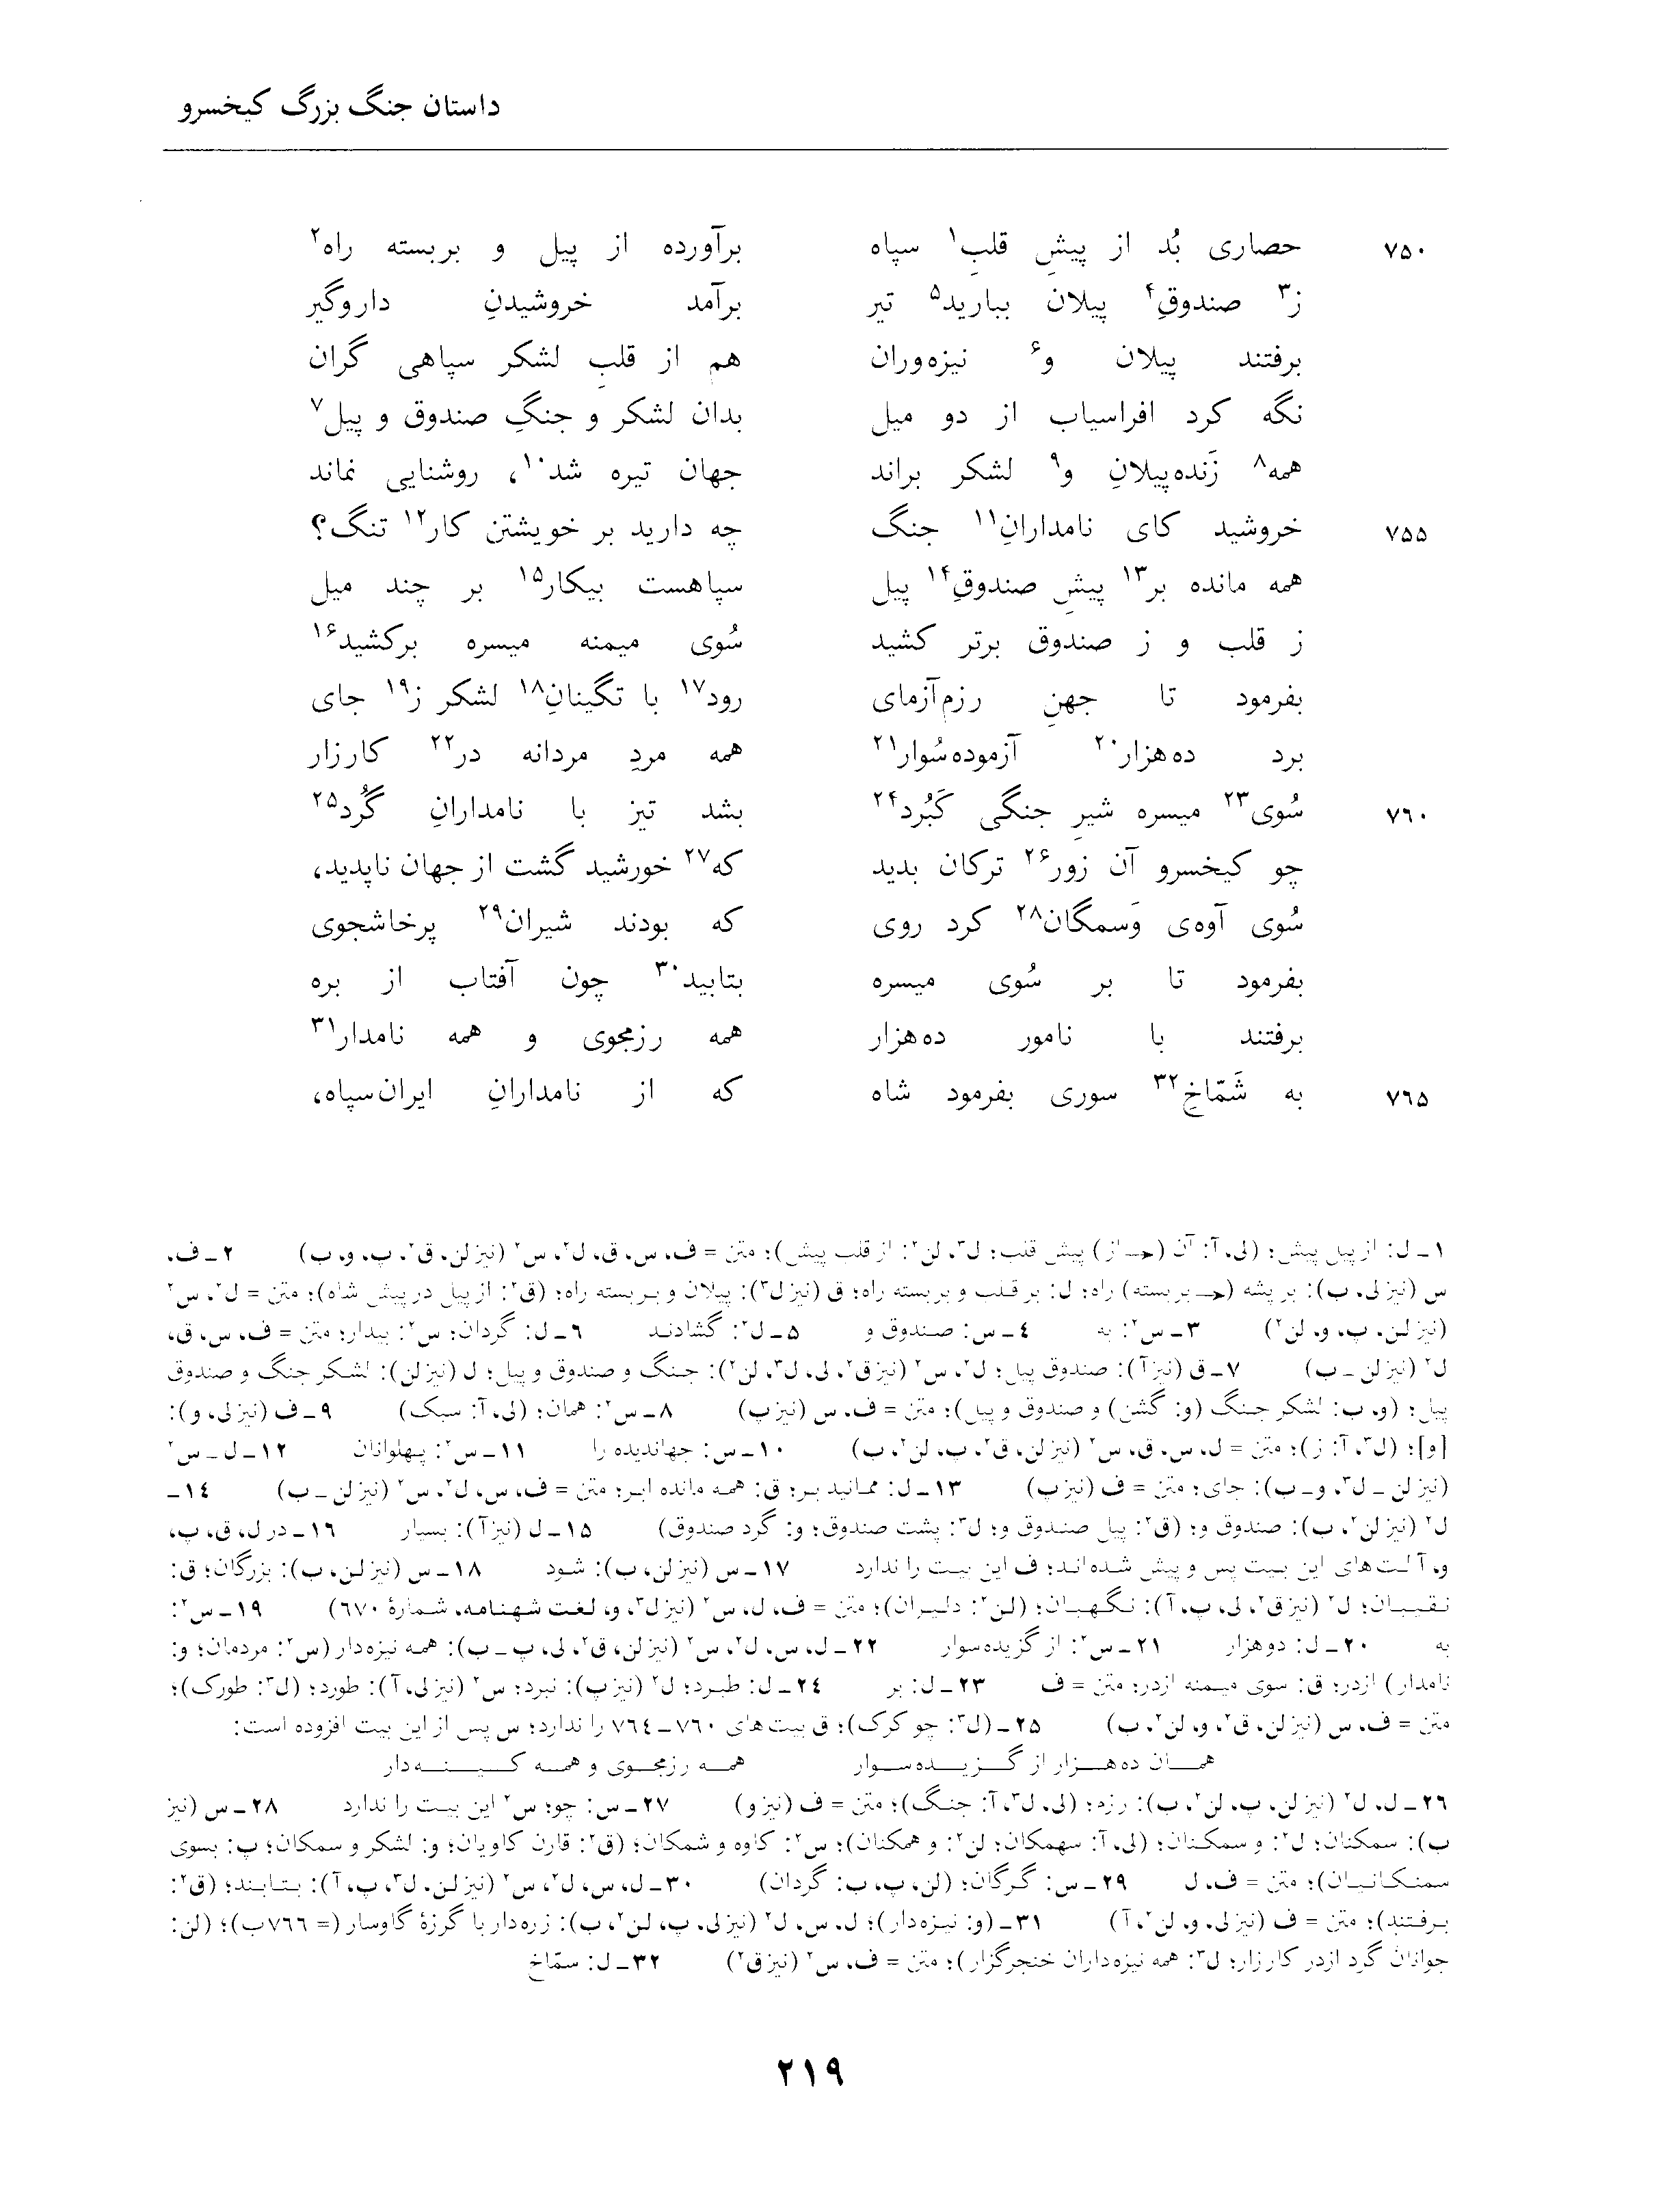 داستان جنگ بزرگ کیخسرو
۷۵۰ حصاری بُد از پیشِ قلبِ۱ سپاه برآورده از پیل و بربسته راه۲
ز۳ صندوقِ۴ پیلان ببارید۵ تیر برآمد خروشیدنِ داروگیر
برفتند پیلان و۶ نیزه‌وران هم از قلبِ لشکر سپاهی گران
نگه کرد افراسیاب از دو میل بدان لشکر و جنگِ صندوق و پیل۷
همه۸ زَنده‌پیلانِ و۹ لشکر براند جهان تیره شد۱۰، روشنایی نماند
۷۵۵ خروشید کای نامدارانِ۱۱ جنگ چه دارید بر خویشتن کار۱۲ تنگ؟
همه مانده بر۱۳ پیشِ صندوقِ۱۴ پیل سپاهست بیکار۱۵ بر چند میل
ز قلب و ز صندوق برتر کشید سُوی میمنه میسره برکشید۱۶
بفرمود تا جهنِ رزم‌آزمای رود۱۷ با تگینانِ۱۸ لشکر ز۱۹ جای
برد ده‌هزار۲۰ آزموده‌سُوار۲۱ همه مردِ مردانه در۲۲ کارزار
۷۶۰ سُوی۲۳ میسره شیرِ جنگی کَبُرد۲۴ بشد تیز با نامدارانِ گُرد۲۵
چو کیخسرو آن زور۲۶ ترکان بدید که۲۷ خورشید گشت از جهان ناپدید،
سُوی آوه‌ی وَسمگان۲۸ کرد روی که بودند شیران۲۹ پرخاشجوی
بفرمود تا بر سُوی میسره بتابید۳۰ چون آفتاب از بره
برفتند با نامور ده‌هزار همه رزمجوی و همه نامدار۳۱
۷۶۵ به شَمّاخِ۳۲ سوری بفرمود شاه که از نامدارانِ ایران‌سپاه،
۱ـ ل: از پیل پیش؛ (لی، آ: آن (جـ از) پیش قلب؛ ل۳، لن۲: از قلب پیش)؛ متن = ف، س، ق، ل۲، س۲ (نیز لن، ق۲، پ، و، ب) ۲ـ ف،
س (نیز لی، ب): بر پشه (جـ بربسته) راه؛ ل: بر قلب و بربسته راه؛ ق (نیز ل۳): پیلان و بربسته راه؛ (ق۲: از پیل در پیش شاه)؛ متن = ل۲، س۲
(نیز لن، پ، و، لن۲) ۳ـ س۲: به ۴ـ س: صندوق و ۵ـ ل۲: گشادند ۶ـ ل: گردان؛ س۲: بیدار؛ متن = ف، س، ق،
ل۲ (نیز لن ـ ب) ۷ـ ق (نیز آ): صندوق پیل؛ ل۲، س۲ (نیز ق۲، لی، ل۳، لن۲): جنگ و صندوق و پیل؛ ل (نیز لن): لشکر جنگ و صندوق
پیل؛ (و، ب: لشکر جنگ (و: گشن) و صندوق و پیل)؛ متن = ف، س (نیز پ) ۸ـ س۲: همان؛ (لی، آ: سبک) ۹ـ ف (نیز لی، و):
[و]؛ (ل۳، آ: ز)؛ متن = ل، س، ق، س۲ (نیز لن، ق۲، پ، لن۲، ب) ۱۰ـ س: جهاندیده را ۱۱ـ س۲: پهلوانان ۱۲ـ ل ـ س۲
(نیز لن ـ ل۳، و ـ ب): جای؛ متن = ف (نیز پ) ۱۳ـ ل: ممانید بر؛ ق: همه مانده ابر؛ متن = ف، س، ل۲، س۲ (نیز لن ـ ب) ۱۴ـ
ل۲ (نیز لن۲، ب): صندوق و؛ (ق۲: پیل صندوق و؛ ل۳: پشت صندوق؛ و: گرد صندوق) ۱۵ـ ل (نیز آ): بسیار ۱۶ـ در ل، ق، پ،
و، آ لت‌های این بیت پس و پیش شده‌اند؛ ف این بیت را ندارد ۱۷ـ س (نیز لن، ب): شود ۱۸ـ س (نیز لن، ب): بزرگان؛ ق:
نقیبان؛ ل۲ (نیز ق۲، لی، پ، آ): نگهبان؛ (لن۲: دلیران)؛ متن = ف، ل، س۲ (نیز ل۳، و، لغت شهنامه، شمارهٔ ۶۷۰) ۱۹ـ س۲:
به ۲۰ـ ل: دوهزار ۲۱ـ س۲: از گزیده‌سوار ۲۲ـ ل، س، ل۲، س۲ (نیز لن، ق۲، لی، پ ـ ب): همه نیزه‌دار (س۲: مردمان؛ و:
نامدار) ازدر؛ ق: سوی میمنه ازدر؛ متن = ف ۲۳ـ ل: بر ۲۴ـ ل: طبرد؛ ل۲ (نیز پ): نبرد؛ س۲ (نیز لی، آ): طورد؛ (ل۳: طورک)؛
متن = ف، س (نیز لن، ق۲، و، لن۲، ب) ۲۵ـ (ل۳: چو کرک)؛ ق بیت‌های ۷۶۰ـ۷۶۴ را ندارد؛ س پس از این بیت افزوده است:
همان ده‌هزار از گزیده‌سوار همه رزمجوی و همه کینه‌دار
۲۶ـ ل، ل۲ (نیز لن، پ، لن۲، ب): رزم؛ (لی، ل۳، آ: جنگ)؛ متن = ف (نیز و) ۲۷ـ س: چو؛ س۲ این بیت را ندارد ۲۸ـ س (نیز
ب): سمکنان؛ ل۲: و سمکنان؛ (لی، آ: سهمکان؛ لن۲: و همکنان)؛ س۲: کاوه و شمکان؛ (ق۲: قارن کاویان؛ و: لشکر و سمکان؛ پ: بسوی
سمنکانیان)؛ متن = ف، ل ۲۹ـ س: گرگان؛ (لن، پ، ب: گردان) ۳۰ـ ل، س، ل۲، س۲ (نیز لن، ل۳، پ، آ): بتابند؛ (ق۲:
برفتند)؛ متن = ف (نیز لی، و، لن۲، آ) ۳۱ـ (و: نیزه‌دار)؛ ل، س، ل۲ (نیز لی، پ، لن۲، ب): زره‌دار با گرزهٔ گاوسار (= ۷۶۶ب)؛ (لن:
جوانان گرد ازدر کارزار؛ ل۳: همه نیزه‌داران خنجرگزار)؛ متن = ف، س۲ (نیز ق۲) ۳۲ـ ل: سمّاخ
۲۱۹